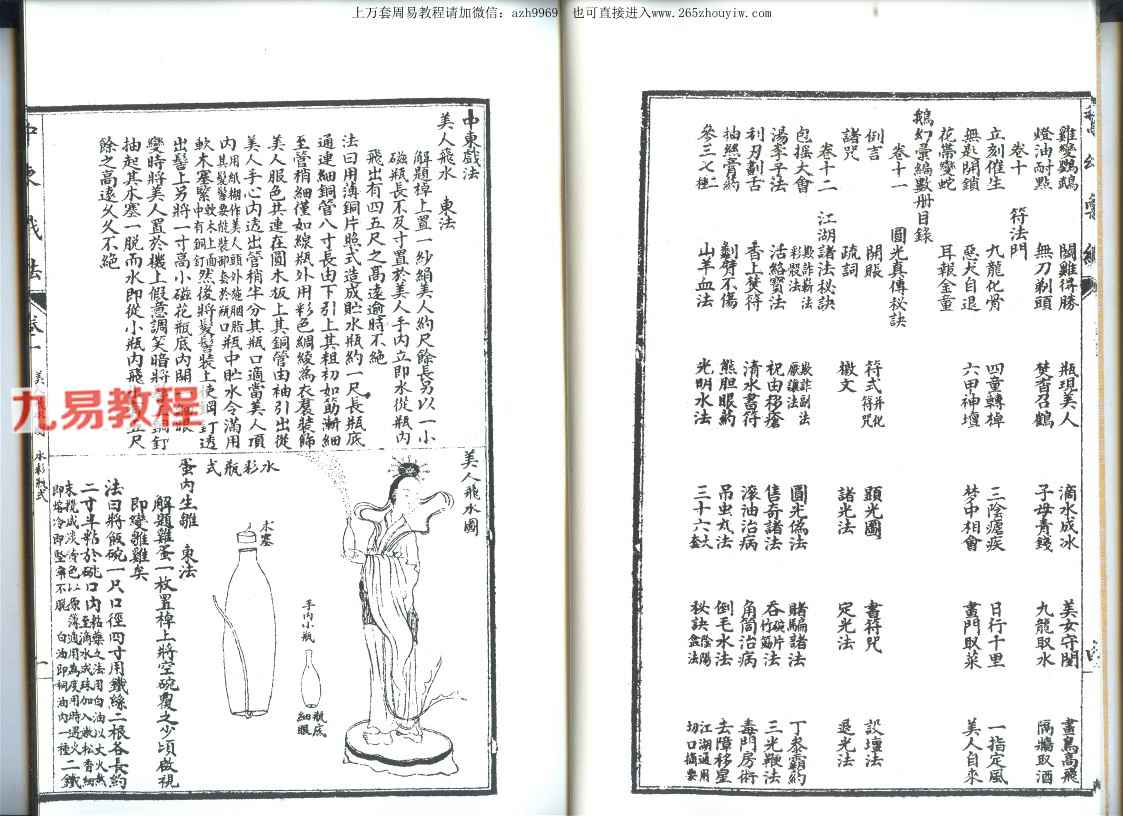 上万套周易教程请加微信：azh9969 也可直接进入www.265zhouyiw.com
雞變鸚鵡 鬪雞得勝 瓶現美人 滴水成冰 美女守閨 畫鳥高飛
燈油耐點 無刀剃頭 焚香召鶴 子母青錢 九龍取水 隔牆取酒
卷十 符法門
立刻催生 九龍化骨 四童轉棹 三陰瘧疾 日行千里 一指定風
無匙開鎖 惡犬自退 六甲神壇 夢中相會 畫門取菜 美人自來
花帶變蛇 耳報金童
鵝幻彙編數册目錄
卷十一 圓光真傳秘訣
例言 開眼 符式并化符咒 顯光圖 書符咒 設壇法
諸咒 疏詞 檄文 諸光法 定光法 退光法
卷十二 江湖諸法秘訣
包摇大會 圓光偽法 賭騙諸法 丁黍霸約
湯李子法 活絡寶法 祝由移瘡 售奇諸法 吞竹筯碗片法 三光鞭法
利刃劃舌 香上焚符 清水書符 滾油治病 角筒治病 毒門房術
抽絲膏葯 劉臂不傷 熊胆眼葯 吊虫丸法 倒毛水法 去障移星
參三七種二 山羊血法 光明水法 三十六套 秘訣陰陽盒法 江湖通用切口摘要
中東戲法
美人飛水 東法
解題棹上置一紗絹美人約尺餘長另以一小
磁瓶長不及寸置於美人手内立即水從瓶内
飛出有四五尺之高遠逾時不絕
法曰用薄銅片照式造成貯水瓶約一尺長瓶底
通連細銅管八寸長由下引上其粗初如筯漸細
至管稍細僅如線瓶外用彩色綢綾爲衣裹裝飾
美人服色共連在圓木板上其銅管由袖引出從
美人手心内透出管稍半分其瓶口適當美人項
内用紙糊作美人頭外施胭脂瓶中貯水令滿用
軟木塞緊
然後將髮髻裝上使銅釘透
出髻上另將一寸高小磁花瓶底内開
變時將美人置於機上假意調笑暗將
抽起其木塞一脱而水即從小瓶内飛
餘之高遠久久不絕
九易教程
美人飛水圖
水彩瓶式
木塞
手内小瓶
瓶底細眼
蛋内生雛 東法
解題雞蛋一枚置棹上將空碗覆之少頃啟視
即變雛雞矣
法曰將飯碗一只口徑四寸用鐵絲二根各長約
二寸半粘於碗口内